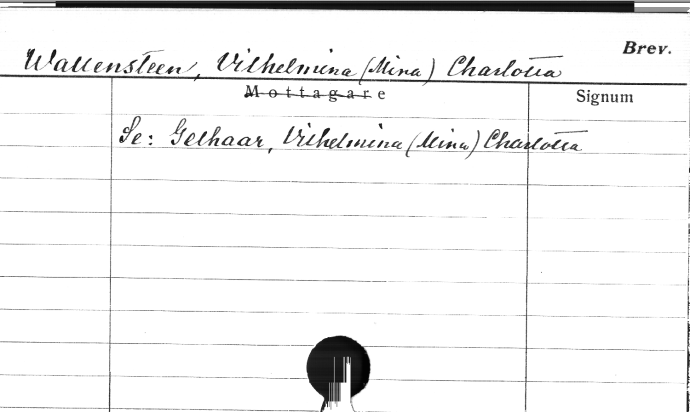 Brev.
Wallensteen, Vilhelmina (Mina) Charlotta
Mottagare
Signum
Se: Gelhaar, Vilhelmina (Mina) Charlotta